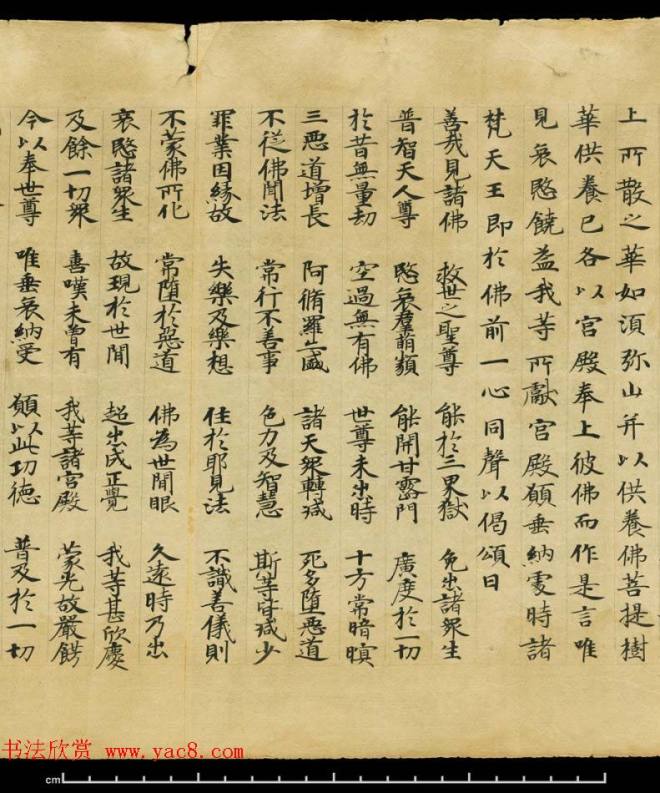 上所散之華如須弥山并以供養佛菩提樹
華供養已各以宮殿奉上彼佛而作是言唯
見哀愍饒益我等所獻宮殿願垂納處時諸
梵天王即於佛前一心同聲以偈頌曰
善哉見諸佛 救世之聖尊 能於三界獄 免出諸眾生
普智天人尊 愍哀羣萌類 能開甘露門 廣度於一切
於昔無量劫 空過無有佛 世尊未出時 十方常暗瞑
三惡道增長 阿脩羅亦盛 諸天眾轉減 死多墮惡道
不從佛聞法 常行不善事 色力及智慧 斯等皆減少
罪業因緣故 失樂及樂想 住於耶見法 不識善儀則
不蒙佛所化 常墮於惡道 佛為世間眼 久遠時乃出
哀愍諸眾生 故現於世間 超出成正覺 我等甚欣慶
及餘一切眾 喜嘆未曾有 我等諸宮殿 蒙光故嚴飾
今以奉世尊 唯垂哀納受 願以此功德 普及於一切
书法欣赏 www.yac8.com
cm